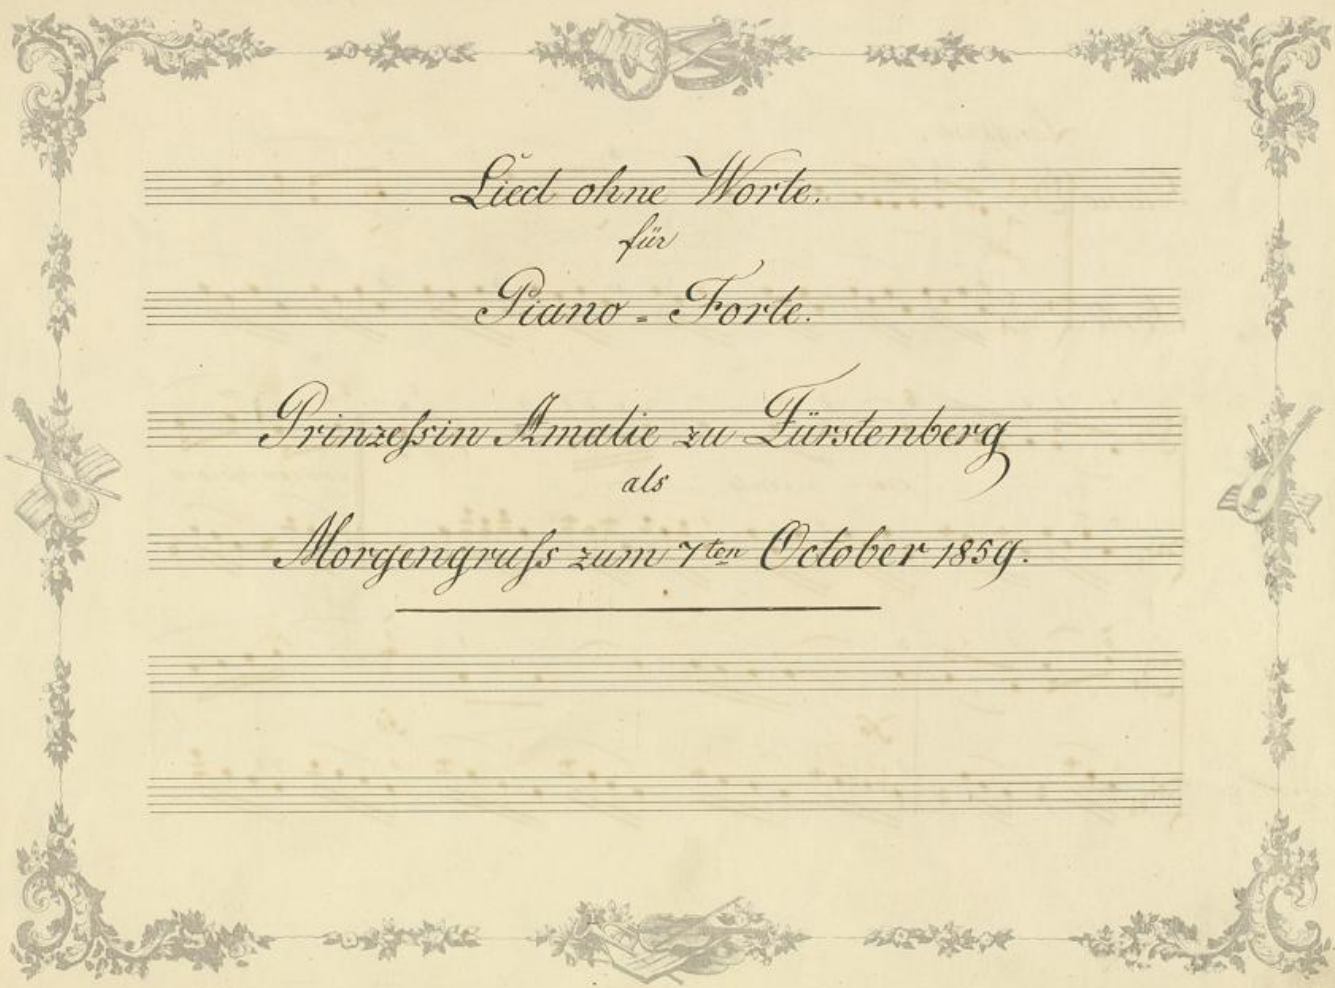 Lied ohne Worte.
für
Piano-Forte.
Prinzeſsin Amalie zu Fürstenberg
als
Morgengruſs zum 7ten October 1859.